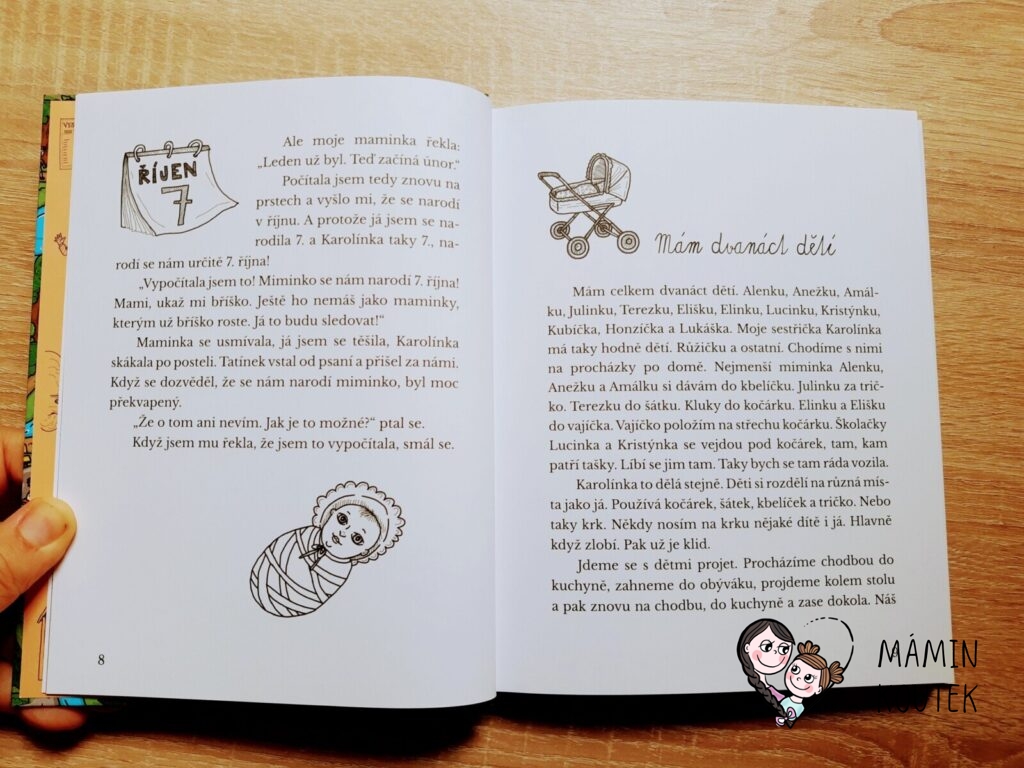 ŘÍJEN
7
Ale moje maminka řekla:
„Leden už byl. Teď začíná únor.“
Počítala jsem tedy znovu na
prstech a vyšlo mi, že se narodí
v říjnu. A protože já jsem se na-
rodila 7. a Karolínka taky 7., na-
rodí se nám určitě 7. října!
„Vypočítala jsem to! Miminko se nám narodí 7. října!
Mami, ukaž mi bříško. Ještě ho nemáš jako maminky,
kterým už bříško roste. Já to budu sledovat!“
Maminka se usmívala, já jsem se těšila, Karolínka
skákala po posteli. Tatínek vstal od psaní a přišel za námi.
Když se dozvěděl, že se nám narodí mimínko, byl moc
překvapený.
„Že o tom ani nevím. Jak je to možné?“ ptal se.
Když jsem mu řekla, že jsem to vypočítala, smál se.
8
Mám dvanáct dětí
Mám celkem dvanáct dětí. Alenku, Anežku, Amál-
ku, Julinku, Terezku, Elišku, Elinku, Lucinku, Kristýnku,
Kubíčka, Honzíčka a Lukáška. Moje sestřička Karolínka
má taky hodně dětí. Růžičku a ostatní. Chodíme s nimi
na procházky po domě. Nejmenší miminka Alenku,
Anežku a Amálku si dávám do kbelíčku. Julinku za trič-
ko. Terezku do šátku. Kluky do kočárku. Elinku a Elišku
do vajíčka. Vajíčko položím na střechu kočárku. Školačky
Lucinka a Kristýnka se vejdou pod kočárek, tam, kam
patří tašky. Líbí se jim tam. Taky bych se tam ráda vozila.
Karolínka to dělá stejně. Děti si rozdělí na různá mís-
ta jako já. Používá kočárek, šátek, kbelíček a tričko. Nebo
taky krk. Někdy nosím na krku nějaké dítě i já. Hlavně
když zlobí. Pak už je klid.
Jdeme se s dětmi projet. Procházíme chodbou do
kuchyně, zahneme do obýváku, projdeme kolem stolu
a pak znovu na chodbu, do kuchyně a zase dokola. Náš
MÁMIN